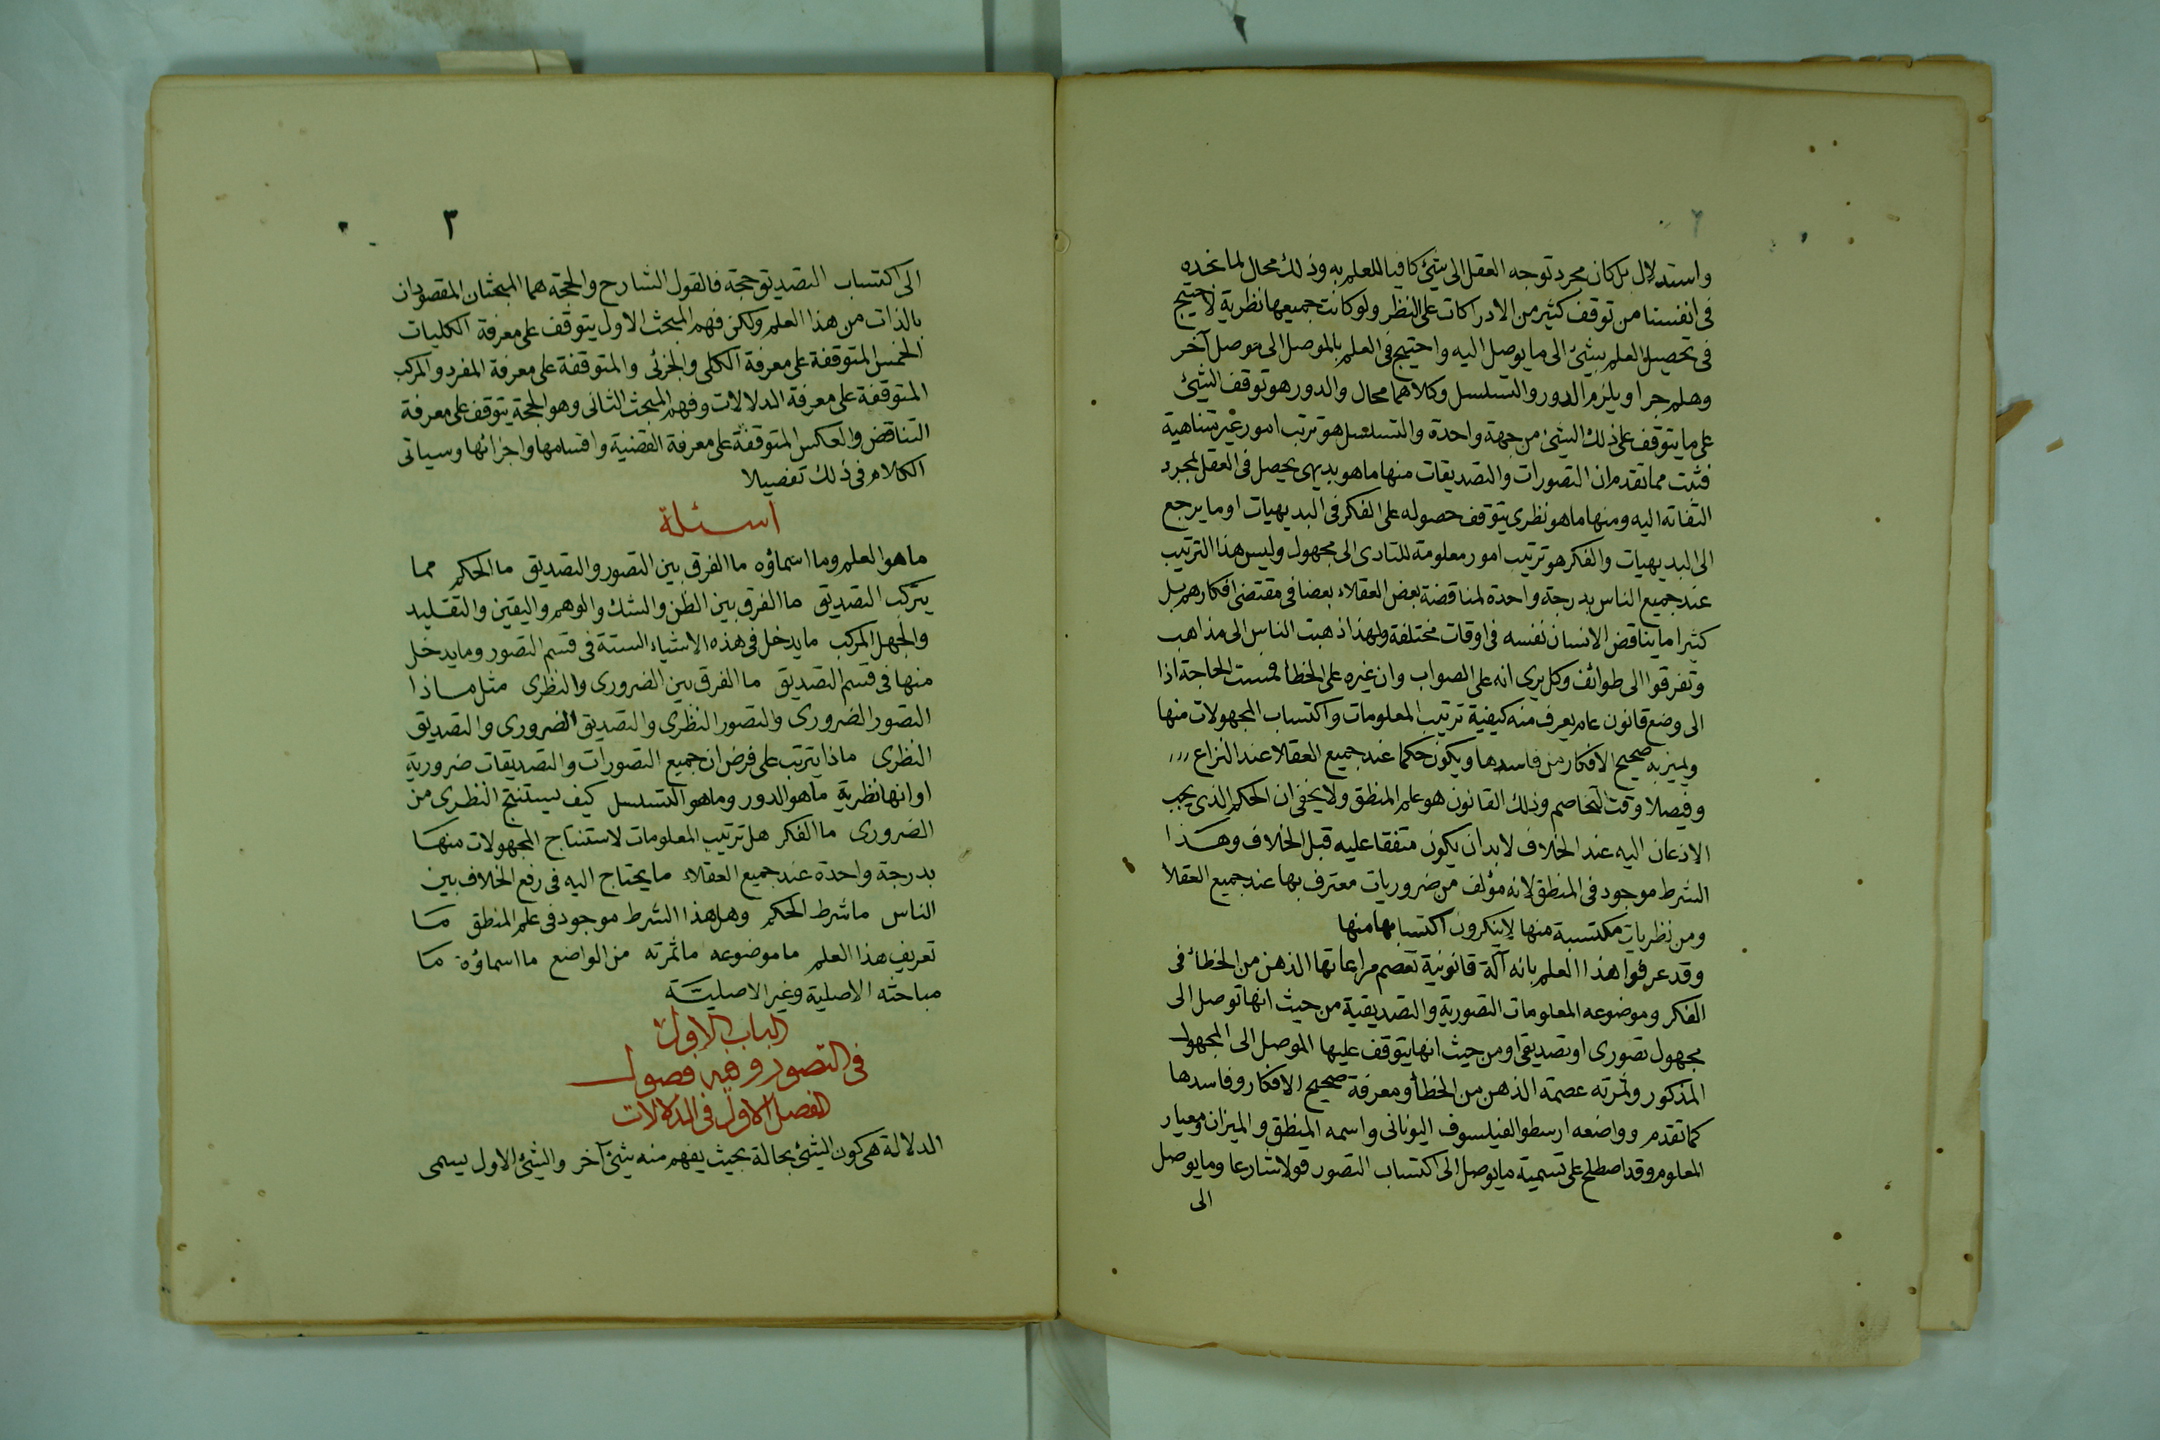 ٢
واستدلال بل كان مجرد توجه العقل الى شئ كافيا للعلم به وذلك محال لما نجده
فى انفسنا من توقف كثير من الادراكات على النظر ولو كانت جميعها نظرية لاحتيج
فى تحصيل العلم بشئ الى ما يوصل اليه واحتيج فى العلم بالموصل الى موصل آخر
وهلم جرا ويلزم الدور والتسلسل وكلاهما محال والدور هو توقف الشئ
على ما يتوقف على ذلك الشئ من جهة واحدة والتسلسل هو ترتب امور غير متناهية
فثبت مما تقدم ان التصورات والتصديقات منها ما هو بديهى يحصل فى العقل بمجرد
التفاته اليه ومنها ما هو نظرى يتوقف حصوله على الفكر فى البديهيات او ما يرجع
الى البديهيات والفكر هو ترتيب امور معلومة للتادى الى مجهول وليس هذا الترتيب
عند جميع الناس بدرجة واحدة لمناقضة بعض العقلاء بعضا فى مقتضى افكارهم بل
كثيرا ما يناقض الانسان نفسه فى اوقات مختلفة ولهذا ذهبت الناس الى مذاهب
وتفرقوا الى طوائف وكل يرى انه على الصواب وان غيره على الخطأ فمست الحاجة اذا
الى وضع قانون عام يعرف منه كيفية ترتيب المعلومات واكتساب المجهولات منها
ويميز به صحيح الافكار من فاسدها ويكون حكما عند جميع العقلا عند النزاع
وفيصلا وقت التخاصم وذلك القانون هو علم المنطق ولا يخفى ان الحكم الذى يجب
الاذعان اليه عند الخلاف لابد ان يكون متفقا عليه قبل الخلاف وهذا
الشرط موجود فى المنطق لانه مؤلف من ضروريات معترف بها عند جميع العقلا
ومن نظريات مكتسبة منها لا ينكرون اكتسابها منها
وقد عرفوا هذا العلم بانه آلة قانونية تعصم مراعاتها الذهن من الخطأ فى
الفكر وموضوعه المعلومات التصورية والتصديقية من حيث انها توصل الى
مجهول تصورى او تصديقى او من حيث انها يتوقف عليها الموصل الى المجهول
المذكور وثمرته عصمة الذهن من الخطأ ومعرفة صحيح الافكار وفاسدها
كما تقدم وواضعه ارسطو الفيلسوف اليونانى واسمه المنطق والميزان ومعيار
المعلوم وقد اصطلح على تسمية ما يوصل الى اكتساب التصور قولا شارعا وما يوصل
الى
٣
الى اكتساب التصديق حجة فالقول الشارح والحجة هما المبحثان المقصودان
بالذات من هذا العلم ولكن فهم المبحث الاول يتوقف على معرفة الكليات
الخمس المتوقفة على معرفة الكلى والجزئى والمتوقفة على معرفة المفرد والمركب
المتوقفة على معرفة الدلالات وفهم المبحث الثانى وهو الحجة يتوقف على معرفة
التناقض والعكس المتوقفة على معرفة القضية واقسامها واجزائها وسياتى
الكلام فى ذلك تفصيلا
اسئلة
ما هو العلم وما اسماؤه ما الفرق بين التصور والتصديق ما الحكم مما
يتركب التصديق ما الفرق بين الظن والشك والوهم واليقين والتقليد
والجهل المركب ما يدخل فى هذه الاشياء الستة فى قسم التصور وما يدخل
منها فى قسم التصديق ما الفرق بين الضرورى والنظرى مثل ماذا
التصور الضرورى والتصور النظرى والتصديق الضرورى والتصديق
النظرى ماذا يترتب على فرض ان جميع التصورات والتصديقات ضرورية
او انها نظرية ما هو الدور وما هو التسلسل كيف يستنتج النظرى من
الضرورى ما الفكر هل ترتيب المعلومات لاستنتاج المجهولات منها
بدرجة واحدة عند جميع العقلاء ما يحتاج اليه فى رفع الخلاف بين
الناس ما شرط الحكم وهل هذا الشرط موجود فى علم المنطق ما
تعريف هذا العلم ما موضوعه ما ثمرته من الواضع ما اسماؤه ما
مباحثه الاصلية وغير الاصلية
الباب الاول
فى التصور وفيه فصول
الفصل الاول فى الدلالات
الدلالة هى كون الشئ بحالة بحيث يفهم منه شئ آخر والشئ الاول يسمى